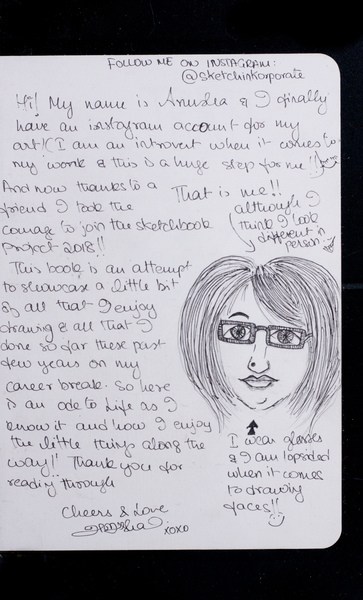 FOLLOW ME ON INSTAGRAM:
@sketchinkorporate
Hi! My name is & I finally
have an instagram account for my
art! (I am an introvert when it comes to
my work & this is a huge step for me!!)
And now thanks to a
friend I took the
courage to join the sketchbook
project 2018!!
This book is an attempt
to showcase a little bit
of all that I enjoy
drawing & all that I
done so far these past
few years on my
career break. So here
is an ode to life as I
know it and how I enjoy
the little things along the
way!! Thank you for
reading through
Cheers & Love
xoxo
That is me!!
although I
think I look
different in
person
I wear glasses
& I am lopsided
when it comes
to drawing
faces!!